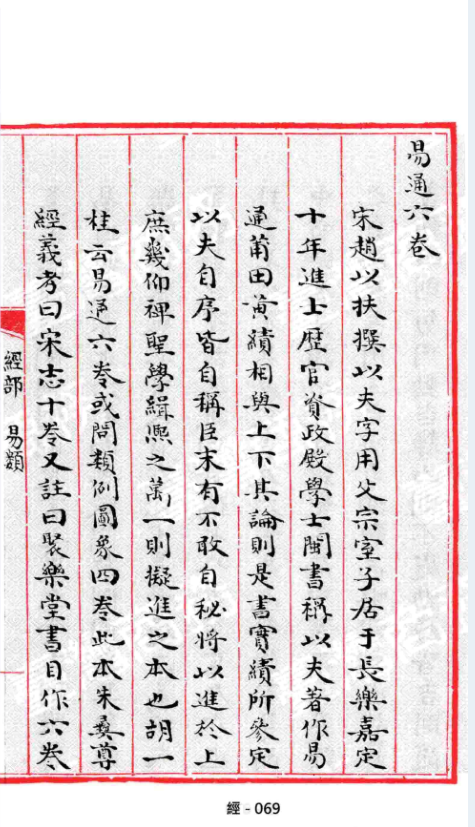 易通六卷
宋趙以扶撰以夫字用父宗室子居于長樂嘉定
十年進士歷官資政殿學士閩書稱以夫著作易
通莆田黃績相與上下其論則是書實績所參定
以夫自序皆自稱臣末有不敢自秘將以進於上
庶幾仰裨聖學緝熙之萬一則擬進之本也胡一
桂云易通六卷或問類例圖象四卷此本朱彝尊
經義考曰宋志十卷又註曰聚樂堂書目作六卷
經部 易類
經 - 069